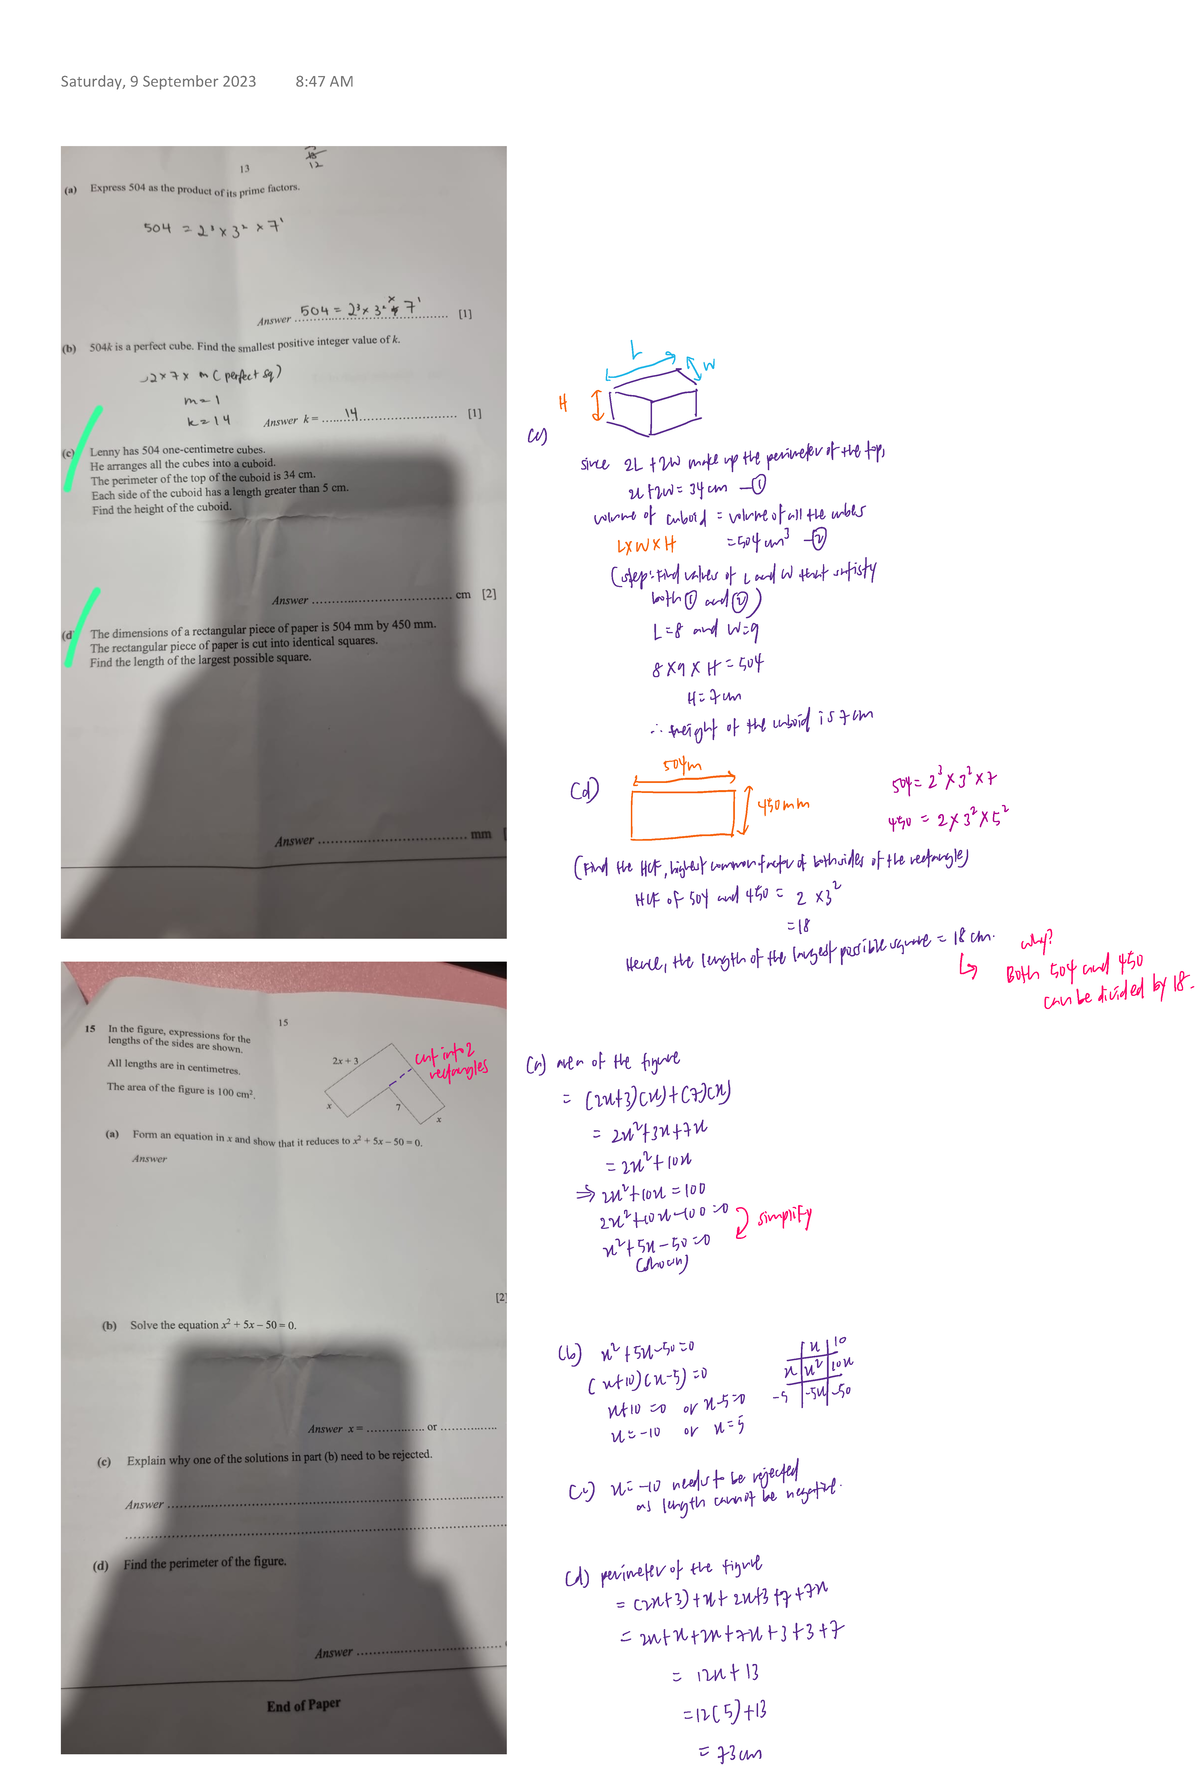 Saturday, 9 September 2023 8:47 AM
12
13
(a) Express 504 as the product of its prime factors.
504 = 2³ × 3² × 7¹
Answer 504 = 2³ × 3² × 7¹ [1]
(b) 504k is a perfect cube. Find the smallest positive integer value of k.
2 × 7 × m (perfect sq)
m = 1
k = 14
Answer k = 14 [1]
(c) Lenny has 504 one-centimetre cubes.
He arranges all the cubes into a cuboid.
The perimeter of the top of the cuboid is 34 cm.
Each side of the cuboid has a length greater than 5 cm.
Find the height of the cuboid.
Answer cm [2]
(d) The dimensions of a rectangular piece of paper is 504 mm by 450 mm.
The rectangular piece of paper is cut into identical squares.
Find the length of the largest possible square.
Answer mm
L
W
H
(c)
since 2L + 2W make up the perimeter of the top,
2L + 2W = 34 cm —①
volume of cuboid = volume of all the cubes
L×W×H = 504 cm³ —②
(step: Find values of L and W that satisfy
both ① and ②)
L = 8 and W = 9
8 × 9 × H = 504
H = 7 cm
∴ height of the cuboid is 7 cm
(d)
504m
450mm
504 = 2³ × 3² × 7
450 = 2 × 3² × 5²
(Find the HCF, highest common factor of both sides of the rectangle)
HCF of 504 and 450 = 2 × 3²
= 18
Hence, the length of the largest possible square = 18 cm.
why?
Both 504 and 450
can be divided by 18.
15
15 In the figure, expressions for the
lengths of the sides are shown.
All lengths are in centimetres.
The area of the figure is 100 cm².
2x + 3
x
7
x
cut into 2
rectangles
(a) Form an equation in x and show that it reduces to x² + 5x − 50 = 0.
Answer
[2]
(b) Solve the equation x² + 5x − 50 = 0.
Answer x = or
(c) Explain why one of the solutions in part (b) need to be rejected.
Answer
(d) Find the perimeter of the figure.
Answer
End of Paper
(a) area of the figure
= (2x+3)(x) + (7)(x)
= 2x² + 3x + 7x
= 2x² + 10x
⇒ 2x² + 10x = 100
2x² + 10x − 100 = 0
simplify
x² + 5x − 50 = 0
(shown)
(b) x² + 5x − 50 = 0
(x+10)(x−5) = 0
x+10 = 0 or x−5 = 0
x = −10 or x = 5
x 10
x x² 10x
−5 −5x −50
(c) x = −10 needs to be rejected
as length cannot be negative.
(d) perimeter of the figure
= (2x+3) + x + 2x+3 + 7 + 7x
= 2x + x + 2x + 7x + 3 + 3 + 7
= 12x + 13
= 12(5) + 13
= 73 cm